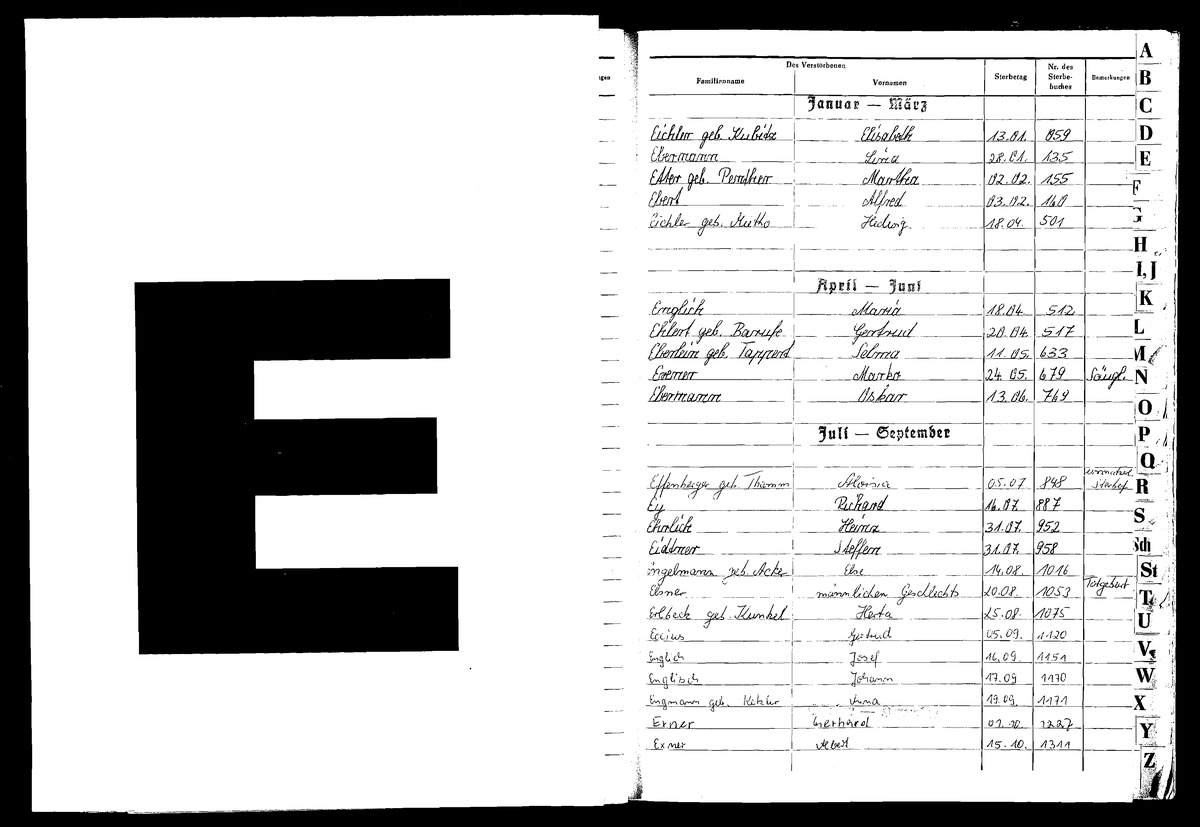 E
Des Verstorbenen
Familienname Vornamen Sterbetag Nr. des Sterbe-buches Bemerkungen
Januar — März
Eichler geb. Kubitz Elisabeth 13.01. 059
Ebermann Lina 28.01. 135
Etter geb. Penther Martha 02.02. 155
Ebert Alfred 03.02. 160
Eichler geb. Hedwig 18.04. 501
April — Juni
Englich Maria 18.04. 512
Ehlert geb. Gertrud 20.04. 517
Eberlein geb. Tappert Selma 11.05. 633
Marko 24.05. 679 Säugl.
Ebermann Oskar 13.06. 769
Juli — September
Effenberger geb. Thamm Aloisia 05.07 848
Ey Richard 16.07. 887
Ehrlich Heinz 31.07. 952
Eidtner Steffen 31.07. 958
ngelmann geb. Acker Else 14.08. 1016
Elsner männlichen Geschlechts 20.08. 1053 Totgeburt
Erlbeck geb. Kunkel Herta 25.08. 1075
Eccius Gertrud 05.09. 1120
Englich Josef 16.09. 1151
Englisch Johann 17.09 1170
Engmann geb. Anna 19.09. 1171
Exner Gerhard 01.10. 1227
Exner Albert 15.10. 1311
A
B
C
D
E
F
G
H
I, J
K
L
M
N
O
P
Q
R
S
Sch
St
T
U
V
W
X
Y
Z